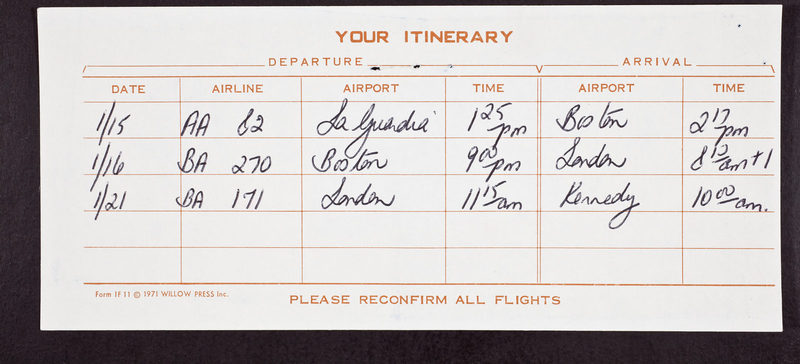 YOUR ITINERARY
DEPARTURE ARRIVAL
DATE AIRLINE AIRPORT TIME AIRPORT TIME
1/15 AA 82 La Guardia 1 25 pm Boston 2 17 pm
1/16 BA 270 Boston 9 00 pm London 8 15 am +1
1/21 BA 171 London 11 15 am Kennedy 10 00 am.
Form IF 11 © 1971 WILLOW PRESS Inc.
PLEASE RECONFIRM ALL FLIGHTS